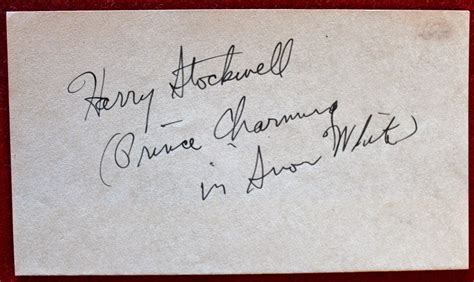 Harry Stockwell
(Prince Charming
in Snow White)